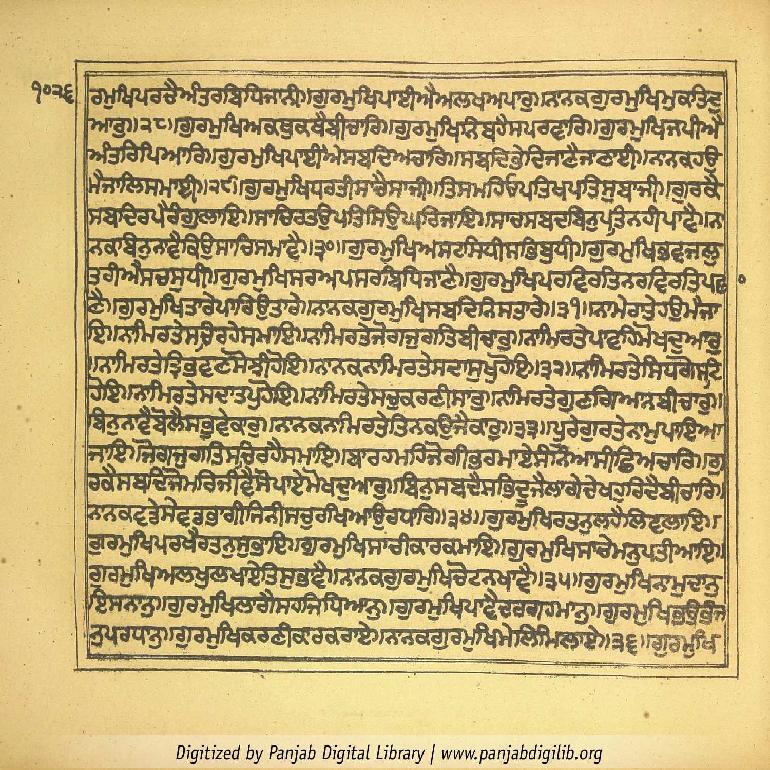 ੧੦੨੬
ਰਮੁਖਿਪਰਚੈਅੰਤਰਬਿਧਿਜਾਨੀ॥ਗੁਰਮੁਖਿਪਾਈਐਅਲਖਅਪਾਰੁ॥ਨਾਨਕਗੁਰਮੁਖਿਮੁਕਤਿਦੁ
ਆਰੁ॥੨੮॥ਗੁਰਮੁਖਿਅਕਥੁਕਥੈਬੀਚਾਰਿ॥ਗੁਰਮੁਖਿਨਿਬਹੈਸਪਰਵਾਰਿ॥ਗੁਰਮੁਖਿਜਪੀਐ
ਅੰਤਰਿਪਿਆਰਿ॥ਗੁਰਮੁਖਿਪਾਈਐਸਬਦਿਅਚਾਰਿ॥ਸਬਦਿਭੇਦਿਜਾਣੈਜਾਣਾਈ॥ਨਾਨਕਹਉ
ਮੈਜਾਲਿਸਮਾਈ॥੨੯॥ਗੁਰਮੁਖਿਧਰਤੀਸਾਚੈਸਾਜੀ॥ਤਿਸਮਹਿਓਪਤਿਖਪਤਿਸੁਬਾਜੀ॥ਗੁਰਕੈ
ਸਬਦਿਰਪੈਰੰਗੁਲਾਇ॥ਸਾਚਿਰਤਉਪਤਿਸਿਉਘਰਿਜਾਇ॥ਸਾਚਸਬਦਬਿਨੁਪਤਿਨਹੀਪਾਵੈ॥ਨਾ
ਨਕਬਿਨੁਨਾਵੈਕਿਉਸਾਚਿਸਮਾਵੈ॥੩੦॥ਗੁਰਮੁਖਿਅਸਟਸਿਧੀਸਭਿਬੁਧੀ॥ਗੁਰਮੁਖਿਭਵਜਲੁ
ਤਰੀਐਸਚਸੁਧੀ॥ਗੁਰਮੁਖਿਸਰਅਪਸਰਬਿਧਿਜਾਣੈ॥ਗੁਰਮੁਖਿਪਰਵਿਰਤਿਨਰਵਿਰਤਿਪਛਾ
ਣੈ॥ਗੁਰਮੁਖਿਤਾਰੇਪਾਰਿਉਤਾਰੇ॥ਨਾਨਕਗੁਰਮੁਖਿਸਬਦਿਨਿਸਤਾਰੇ॥੩੧॥ਨਾਮੇਰਾਤੇਹਉਮੈਜਾ
ਇ॥ਨਾਮਿਰਤੇਸਚਿਰਹੇਸਮਾਇ॥ਨਾਮਿਰਤੇਜੋਗਜੁਗਤਿਬੀਚਾਰੁ॥ਨਾਮਿਰਤੇਪਾਵਹਿਮੋਖਦੁਆਰੁ
॥ਨਾਮਿਰਤੇਤ੍ਰਿਭਵਣਸੋਝੀਹੋਇ॥ਨਾਨਕਨਾਮਿਰਤੇਸਦਾਸੁਖੁਹੋਇ॥੩੨॥ਨਾਮਿਰਤੇਸਿਧਗੋਸਟਿ
ਹੋਇ॥ਨਾਮਿਰਤੇਸਦਾਤਪੁਹੋਇ॥ਨਾਮਿਰਤੇਸਚੁਕਰਣੀਸਾਰੁ॥ਨਾਮਿਰਤੇਗੁਣਗਿਆਨਬੀਚਾਰੁ॥
ਬਿਨੁਨਾਵੈਬੋਲੈਸਭੁਵੇਕਾਰੁ॥ਨਾਨਕਨਾਮਿਰਤੇਤਿਨਕਉਜੈਕਾਰੁ॥੩੩॥ਪੂਰੇਗੁਰਤੇਨਾਮੁਪਾਇਆ
ਜਾਇ॥ਜੋਗਜੁਗਤਿਸਚਿਰਹੈਸਮਾਇ॥ਬਾਰਹਮਹਿਜੋਗੀਭਰਮਾਏਸੰਨਿਆਸੀਛਿਅਚਾਰਿ॥ਗੁ
ਰਕੈਸਬਦਿਜੋਮਰਿਜੀਵੈਸੋਪਾਏਮੋਖਦੁਆਰੁ॥ਬਿਨੁਸਬਦੈਸਭਿਦੂਜੈਲਾਗੇਦੇਖਹੁਰਿਦੈਬੀਚਾਰਿ॥
ਨਾਨਕਵਡੇਸੇਵਡਭਾਗੀਜਿਨੀਸਚੁਰਖਿਆਉਰਧਾਰਿ॥੩੪॥ਗੁਰਮੁਖਿਰਤਨੁਲਹੈਲਿਵਲਾਇ॥
ਗੁਰਮੁਖਿਪਰਖੈਰਤਨੁਸੁਭਾਇ॥ਗੁਰਮੁਖਿਸਾਚੀਕਾਰਕਮਾਇ॥ਗੁਰਮੁਖਿਸਾਚੇਮਨੁਪਤੀਆਇ॥
ਗੁਰਮੁਖਿਅਲਖੁਲਖਾਏਤਿਸੁਭਾਵੈ॥ਨਾਨਕਗੁਰਮੁਖਿਚੋਟਨਖਾਵੈ॥੩੫॥ਗੁਰਮੁਖਿਨਾਮੁਦਾਨੁ
ਇਸਨਾਨੁ॥ਗੁਰਮੁਖਿਲਾਗੈਸਹਜਿਧਿਆਨੁ॥ਗੁਰਮੁਖਿਪਾਵੈਦਰਗਹਮਾਨੁ॥ਗੁਰਮੁਖਿਭਉਭੰਜ
ਨੁਪਰਧਾਨੁ॥ਗੁਰਮੁਖਿਕਰਣੀਕਾਰਕਰਾਏ॥ਨਾਨਕਗੁਰਮੁਖਿਮੇਲਿਮਿਲਾਏ॥੩੬॥ਗੁਰਮੁਖਿ
Digitized by Panjab Digital Library | www.panjabdigilib.org